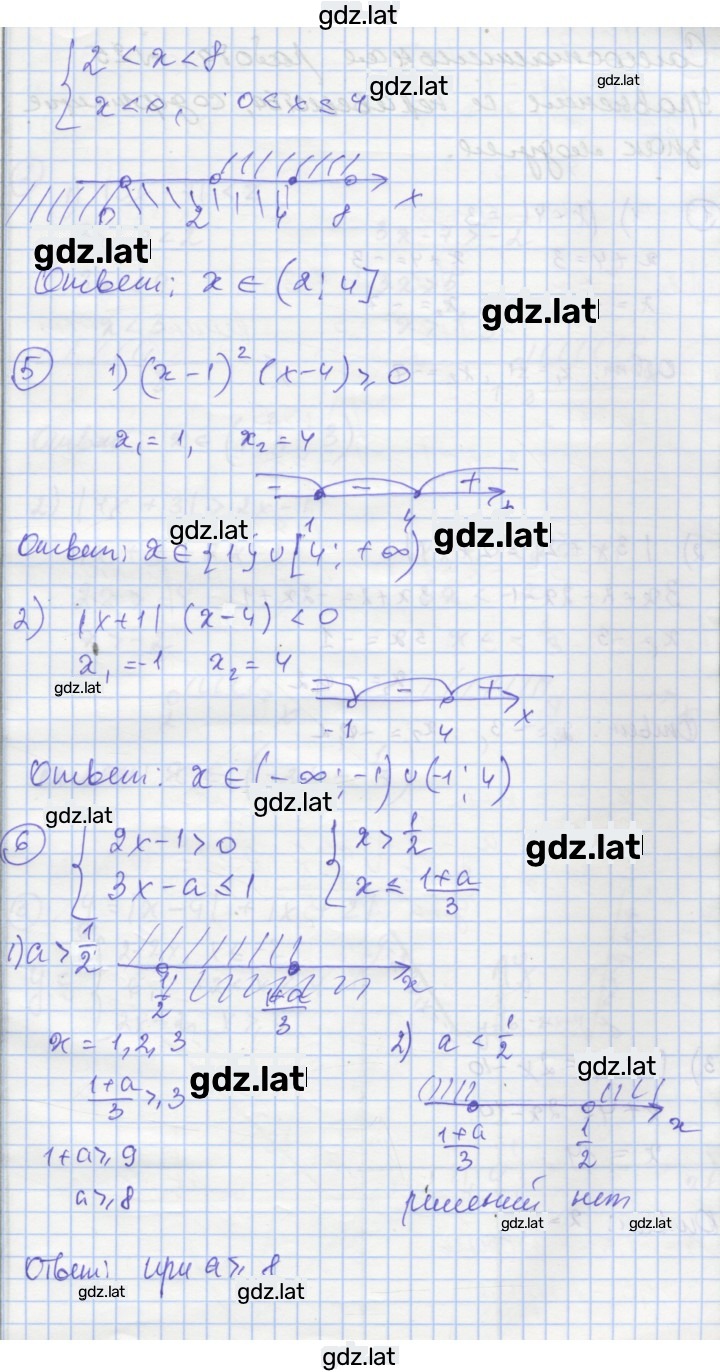 gdz.lat
{ 2 < x < 8
gdz.lat
gdz.lat
x < 0, 0 < x ≤ 4
0 2 4 8 x
gdz.lat
Ответ: x ∈ (2; 4]
gdz.lat
5 1) (x-1)² (x-4) ≥ 0
x₁ = 1, x₂ = 4
- - +
1 4
gdz.lat
gdz.lat
Ответ: x ∈ {1} ∪ [4; +∞)
2) |x+1| (x-4) < 0
x₁ = -1 x₂ = 4
gdz.lat
- - +
-1 4 x
Ответ: x ∈ (-∞; -1) ∪ (-1; 4)
gdz.lat
gdz.lat
6 { 2x-1 > 0 { x > 1/2
gdz.lat
3x-a ≤ 1 x ≤ (1+a)/3
1) a > 1/2
1/2 (1+a)/3 x
x = 1, 2, 3 2) a < 1/2
gdz.lat
gdz.lat
(1+a)/3 ≥ 3
(1+a)/3 1/2 x
1+a ≥ 9
a ≥ 8 решений нет
gdz.lat
gdz.lat
Ответ: при a ≥ 8
gdz.lat
gdz.lat
gdz.lat